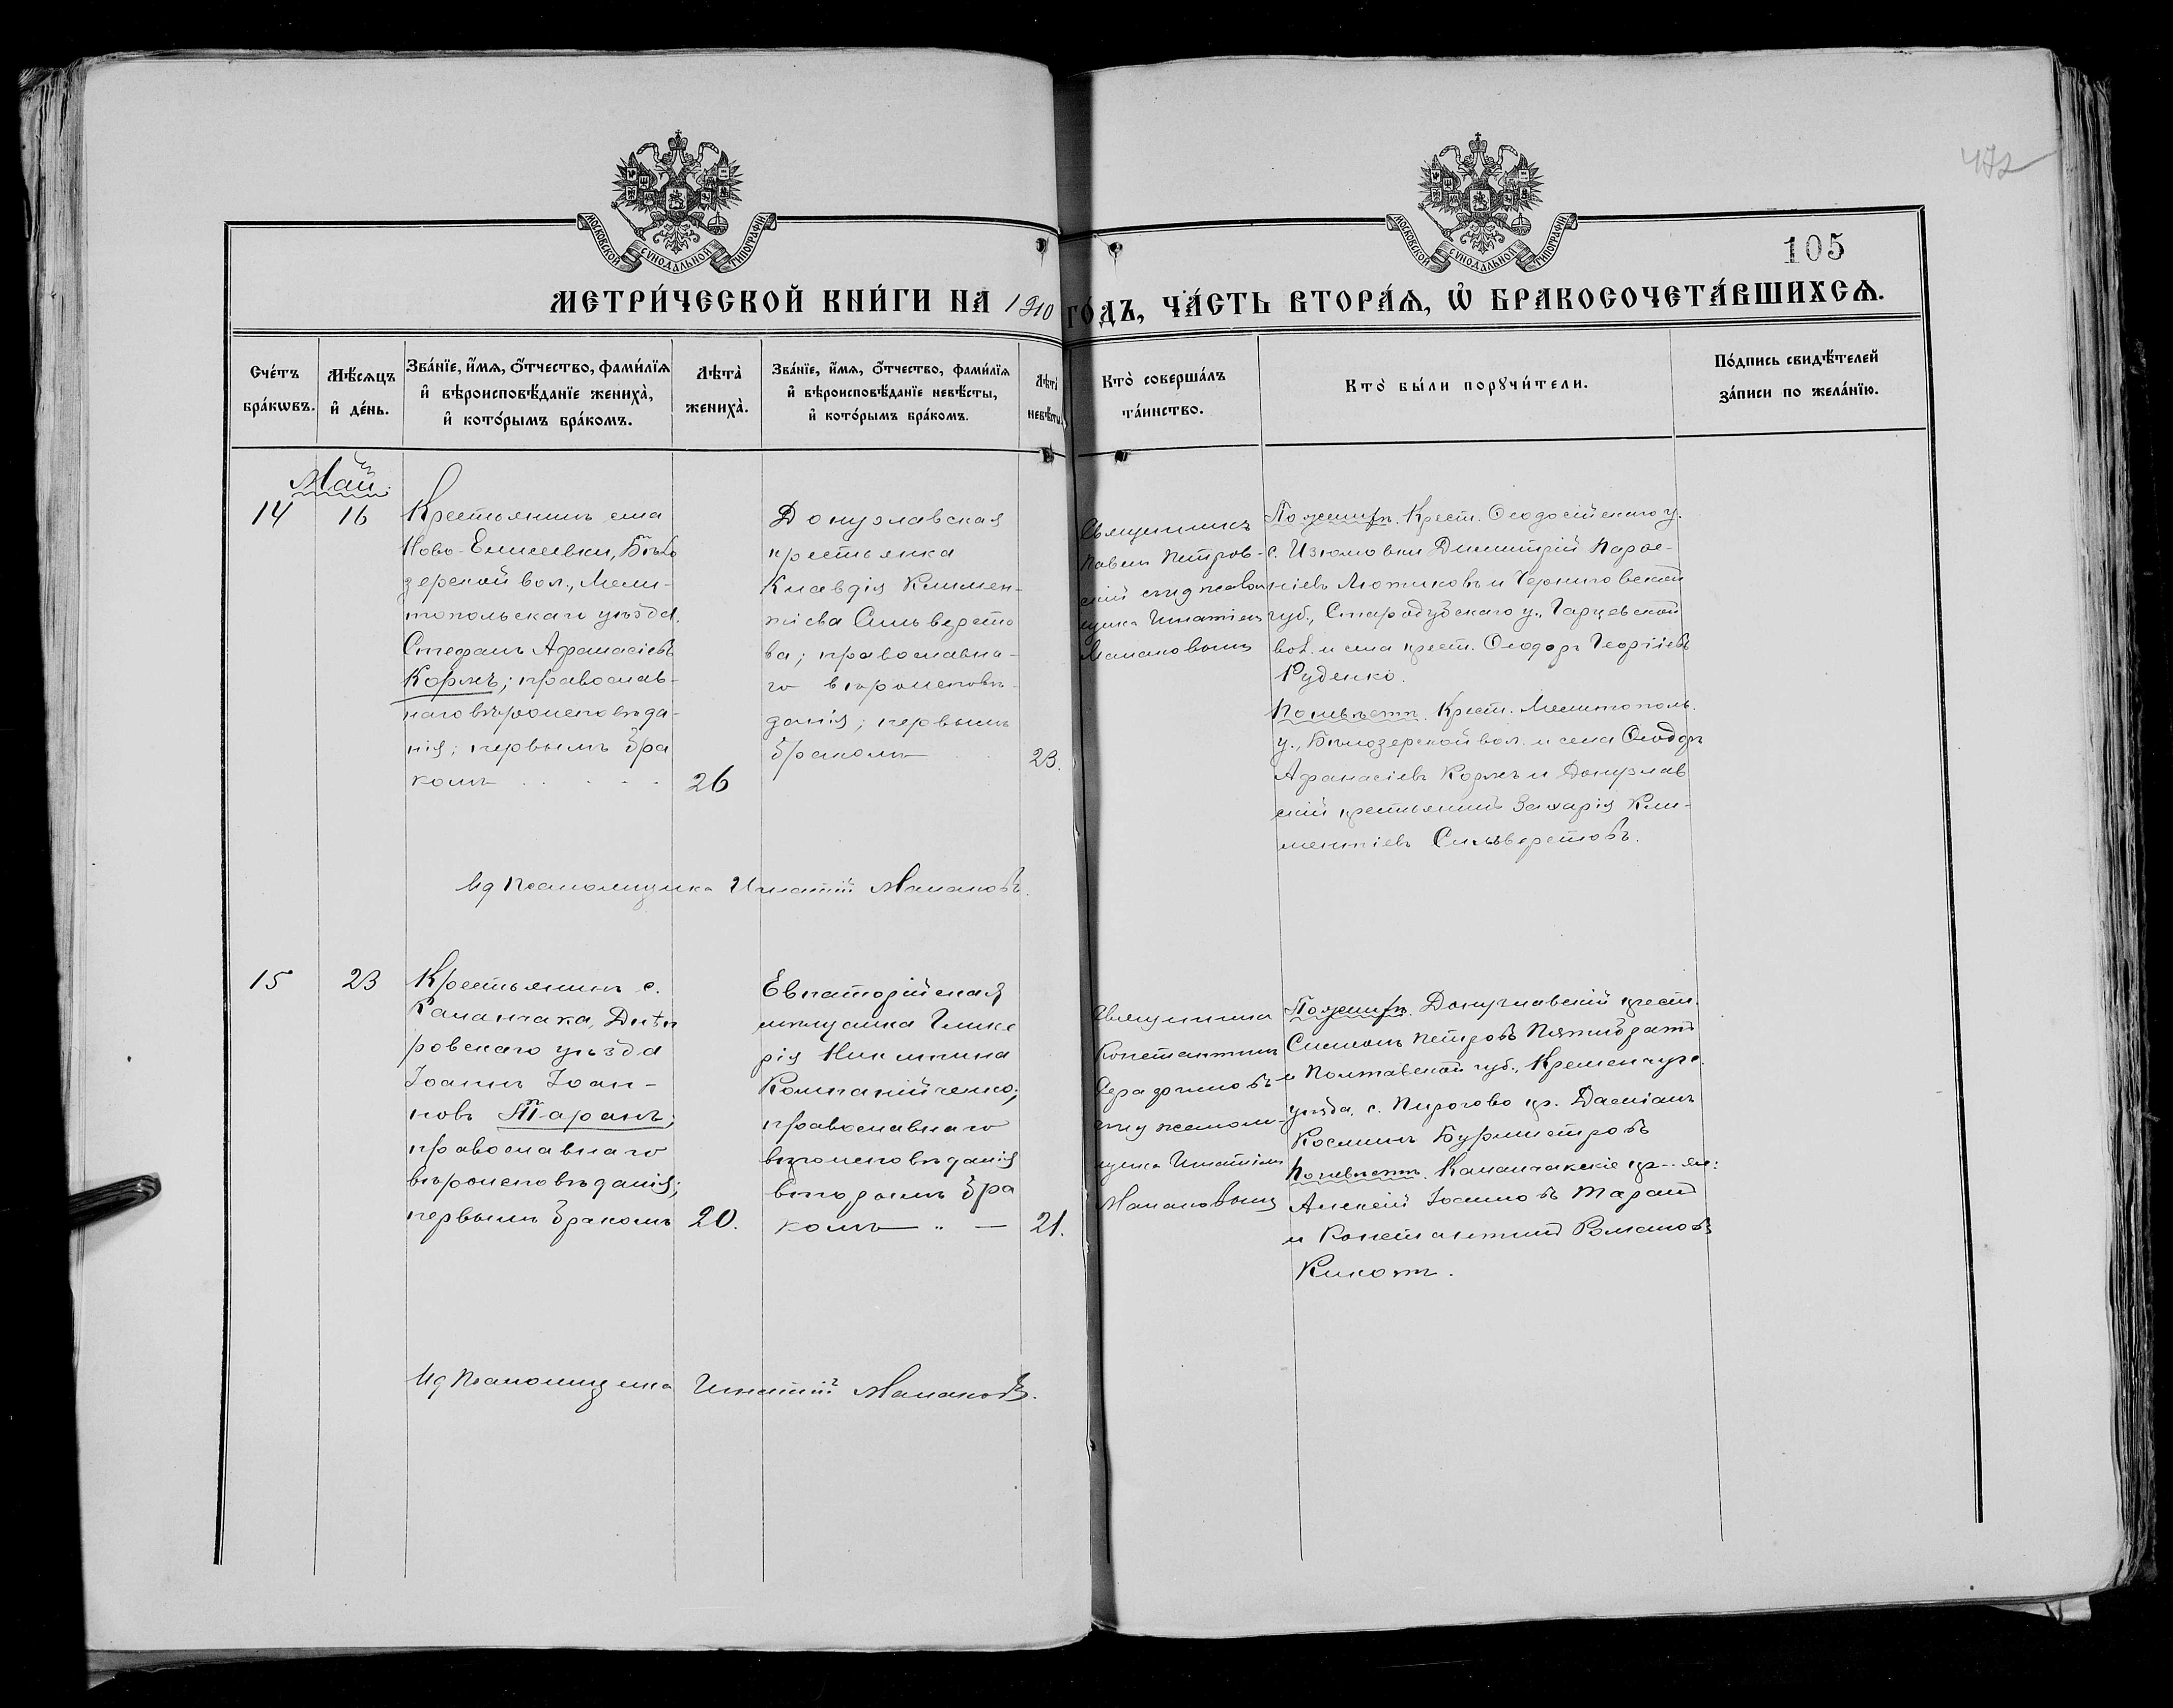 472
105
МОСКОВСКОЙ СѴНОДАЛЬНОЙ ТИПОГРАФІИ
МОСКОВСКОЙ СѴНОДАЛЬНОЙ ТИПОГРАФІИ
МЕТРИ́ЧЕСКОЙ КНИ́ГИ НА 1910 ГО́ДЪ, ЧА́СТЬ ВТОРА́Ѧ, Ѡ БРАКОСОЧЕТА́ВШИХСѦ.
Сче́тъ бра́кωвъ.
Мѣ́сяцъ и де́нь.
Зва́нїе, и́мѧ, ѻ́тчество, фами́лїѧ и вѣроисповѣ́данїе жениха̀, и кото́рымъ бра́комъ.
Лѣта̀ жениха̀.
Зва́нїе, и́мѧ, ѻ́тчество, фами́лїѧ и вѣроисповѣ́данїе невѣ́сты, и кото́рымъ бра́комъ.
Лѣта̀ невѣ́сты
Кто̀ соверша́лъ та́инство.
Кто̀ бы́ли порꙋчи́тели.
По́дпись свидѣ́телей за́писи по жела́нїю.
Май.
14
16
Крестьянинъ села
Ново-Елисеевки, Бѣло
зерской вол., Мели-
топольскаго уѣзда.
Стефанъ Афанасіевъ
Коржъ; православ-
наго вѣроисповѣда-
нія; первымъ бра
комъ
26
Донузлавская
крестьянка
Клавдія Климен-
тіева Сильверсто
ва; православна-
го вѣроисповѣ-
данія; первымъ
бракомъ
23.
Священникъ
Павелъ Петров-
скій съ и д псалом
щика Игнатіемъ
Манаковымъ
По женихѣ. Крест. Ѳеодосійскаго у.
с. Изюмовки Димитрій Парѳе-
ніевъ Мотиковъ и Черниговской
губ., Стародубскаго у., Гарцевской
вол. и села крест. Ѳеодоръ Георгіевъ
Руденко.
По невѣстѣ. Крест. Мелитополь.
у., Бѣлозерской вол. и села Ѳеодоръ
Афанасіевъ Коржъ и Донузлав
скій крестьянинъ Захарія Кли-
ментіевъ Сильверстовъ.
Ид Псаломщика Игнатій Манаковъ.
15
23
Крестьянинъ с.
Каланчака, Днѣп
ровскаго уѣзда
Іоаннъ Іоан-
новъ Таранъ;
православнаго
вѣроисповѣданія;
первымъ бракомъ
20.
Евпаторійская
мѣщанка Глике
рія Никитина
Компанійченко;
православнаго
вѣроисповѣданія
вторымъ бра
комъ — „ —
21.
Священника
Константинъ
съ и д псалом-
щика Игнатіемъ
Манаковымъ
По женихѣ. Донузлавскій крест.
Симеонъ Петровъ Пятибратъ
и Полтавской губ., Кременчугс.
уѣзда, с. Пирогово кр. Даміанъ
Косминъ Бурмистровъ
По невѣстѣ. Каланчакскіе кр-не:
Алексій Іоанновъ Таранъ
и Константинъ Романовъ
Кикоть.
Ид Псаломщика Игнатій Манаковъ.